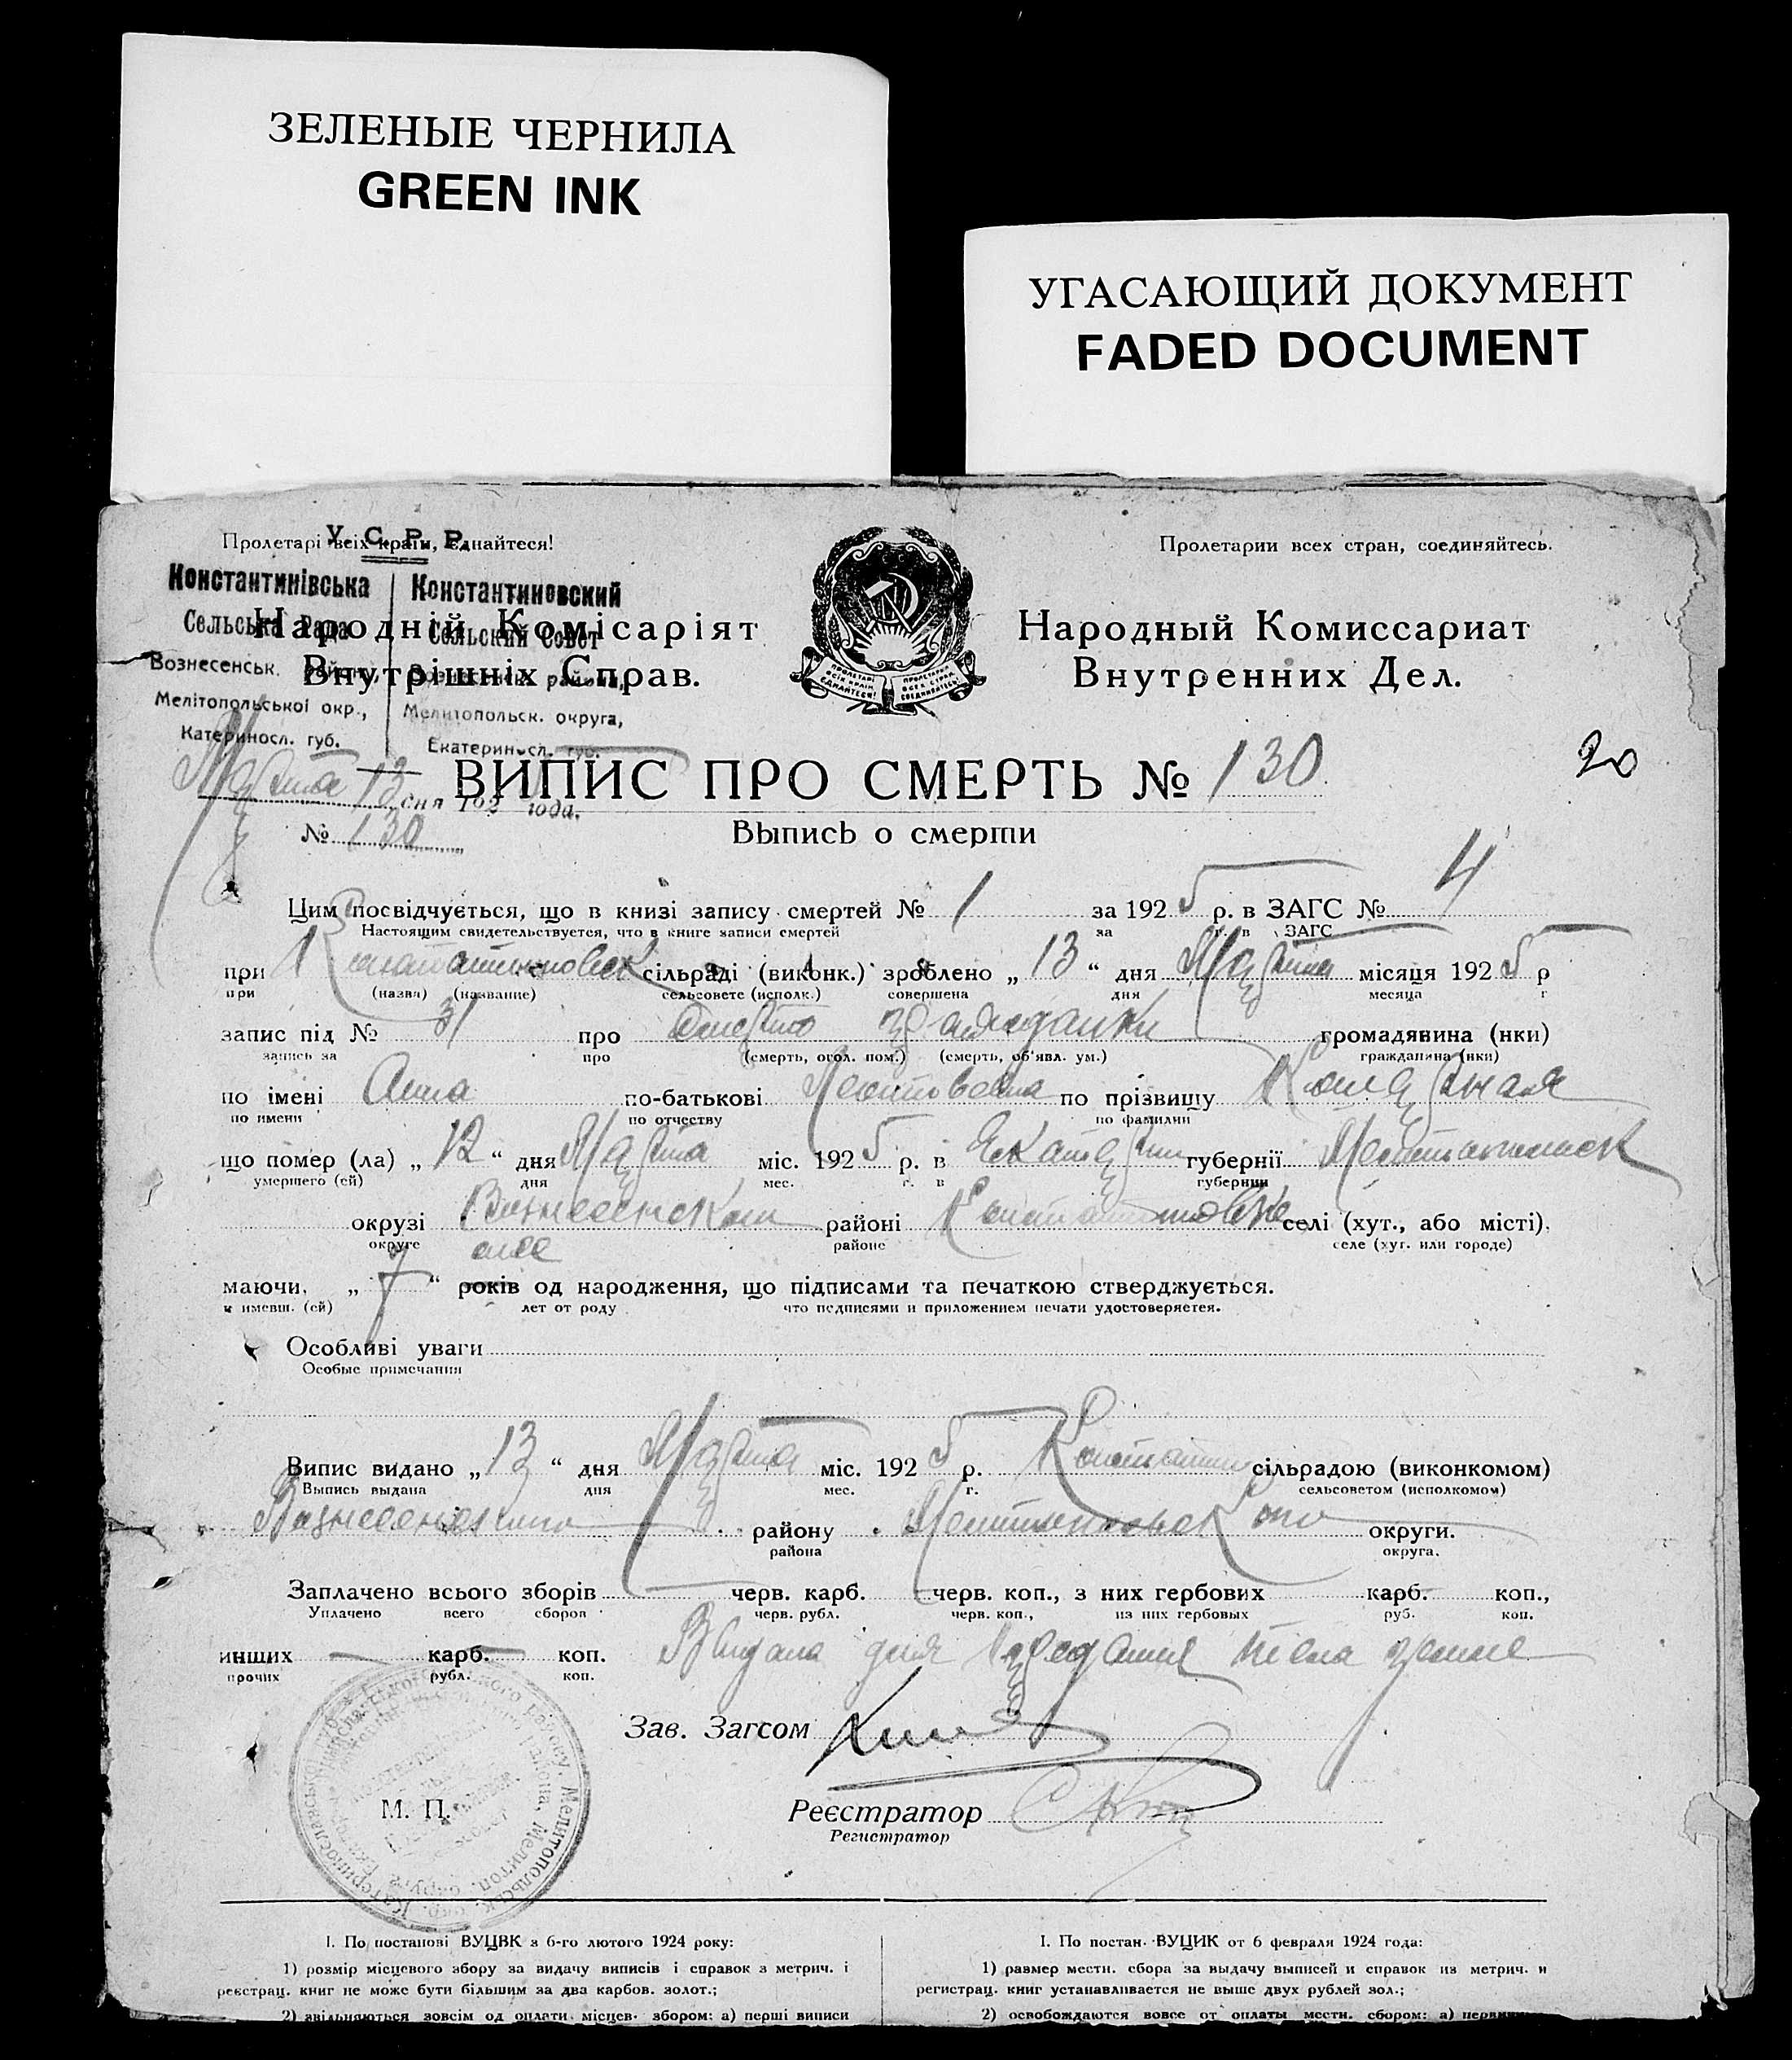 ЗЕЛЕНЫЕ ЧЕРНИЛА
GREEN INK
УГАСАЮЩИЙ ДОКУМЕНТ
FADED DOCUMENT
Пролетарі всіх країн, єднайтеся!
Пролетарии всех стран, соединяйтесь.
У. С. Р. Р.
Константинівська
Сельська Рада
Вознесенськ. району,
Мелітопольської окр.,
Катеринosл. губ.
Константиновский
Сельский Совет
Вознесенск. района,
Мелитопольск. округа,
Екатериносл. губ.
Марта 13 дня 192 5 года.
№ 130
Народній Комісаріят
Внутрішніх Справ.
ПРОЛЕТАРІ ВСІХ КРАЇН ЄДНАЙТЕСЯ!
ПРОЛЕТАРИИ ВСЕХ СТРАН СОЕДИНЯЙТЕСЬ!
Народный Комиссариат
Внутренних Дел.
20
ВИПИС ПРО СМЕРТЬ № 130
Выпись о смерти
Цим посвідчується, що в книзі запису смертей № 1 за 192 5 р. в ЗАГС № 4
Настоящим свидетельствуется, что в книге записи смертей за г. в ЗАГС
при Константиновск сільраді (виконк.) зроблено „ 13 “ дня Марта місяця 192 5 р
при (назва) (название) сельсовете (исполк.) совершена дня месяца г
запис під № 31 про смерть гражданки громадянина (нки)
запись за про (смерть, огол. пом.) (смерть, об'явл. ум.) гражданина (нки)
по імені Анна по-батькові по прізвищу
по имени по отчеству по фамилии
що помер (ла) „ 12 “ дня Марта міс. 192 5 р. в Екатерин губернії Мелитопольск
умершего (ей) дня мес. г. в губернии
округзі Вознесенском районі Константиновке селі (хут., або місті),
округе районе селе (хут. или городе)
маючи, „ 7 “ років од народження, що підписами та печаткою стверджується.
и имевш. (ей) лет от роду что подписями и приложением печати удостоверяется.
Особливі уваги
Особые примечания
Випис видано „ 13 “ дня Марта міс. 192 5 р. Константин сільрадою (виконкомом)
Выпись выдана дня мес. г. сельсоветом (исполкомом)
Вознесенского району Мелитопольского округи.
района округа.
Заплачено всього зборів черв. карб. черв. коп., з них гербових карб. коп.,
Уплачено всего сборов черв. рубл. черв. коп., из них гербовых руб. коп.
инших — карб. — коп. Видана для предания тела земле
прочих рубл. коп.
Зав. Загсом
М. П.
Реєстратор
Регистратор
I. По постанові ВУЦВК з 6-го лютого 1924 року:
1) розмір місцевого збору за видачу виписів і справок з метрич. і
реєстрац. книг не може бути більшим за два карбов. золот.;
2) звільняються зовсім од оплати місцев. збором: а) перші виписи
I. По постан. ВУЦИК от 6 февраля 1924 года:
1) размер местн. сбора за выдачу выписей и справок из метрич. и
регистрац. книг устанавливается не выше двух рублей зол.;
2) освобождаются вовсе от оплаты местн. сбором: а)